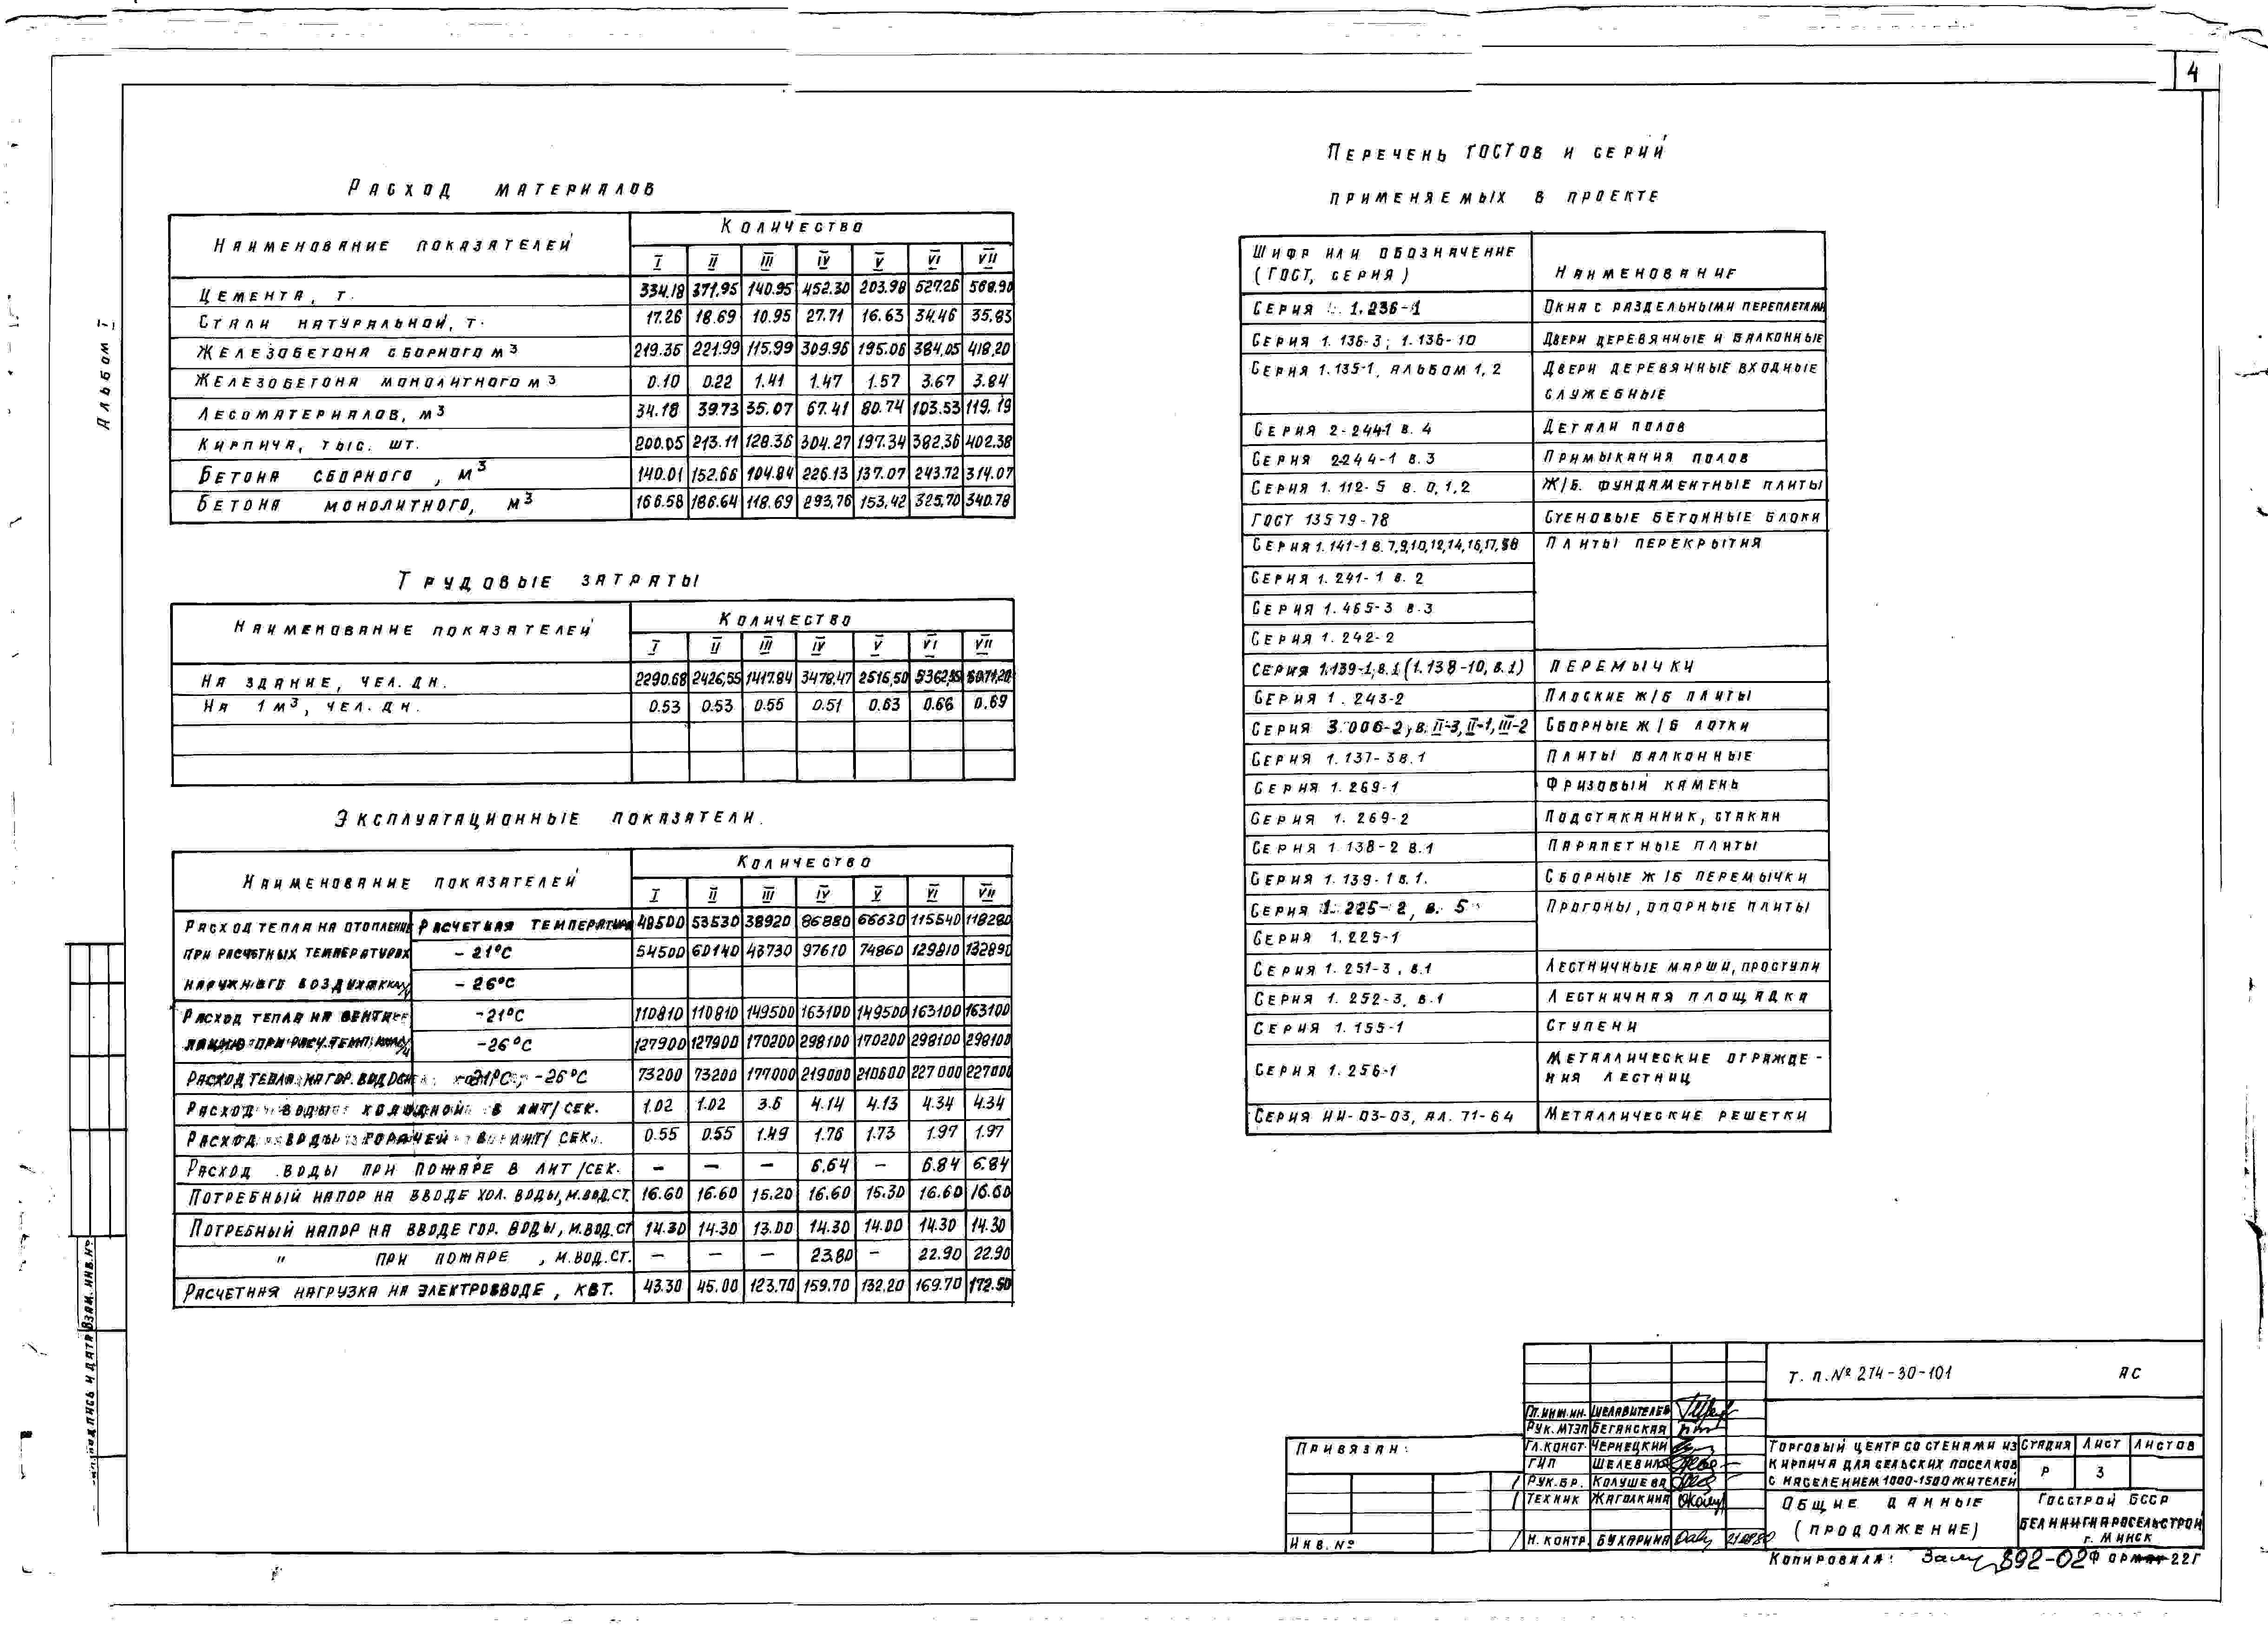 4
Альбом I
Расход материалов
Наименование показателей Количество
I II III IV V VI VII
Цемента, т. 334.18 371.95 140.95 452.30 203.98 527.26 568.90
Стали натуральной, т. 17.26 18.69 10.95 27.71 16.63 34.46 35.83
Железобетона сборного м3 219.36 221.99 115.99 309.96 195.06 384.05 418.20
Железобетона монолитного м3 0.10 0.22 1.41 1.47 1.57 3.67 3.84
Лесоматериалов, м3 34.18 39.73 35.07 67.41 80.74 103.53 119.19
Кирпича, тыс. шт. 200.05 213.11 128.36 304.27 197.34 382.36 402.38
Бетона сборного, м3 140.01 152.66 104.84 226.13 137.07 243.72 314.07
Бетона монолитного, м3 166.58 186.64 118.69 293.76 153.42 325.70 340.78
Трудовые затраты
Наименование показателей Количество
I II III IV V VI VII
На здание, чел. дн. 2290.68 2426,55 1417.84 3478.47 2516,50
На 1 м3, чел. дн. 0.53 0.53 0.55 0.51 0.63 0.66 0.69
Эксплуатационные показатели.
Наименование показателей Количество
I II III IV V VI VII
Расход тепла на отопление Расчетная температура 49500 53530 38920 86880 66630 115540 118280
при расчетных температурах - 21°C 54500 60140 43730 97610 74860 129810 132890
наружного воздуха - 26°C
Расход тепла на венти -21°C 110810 110810 149500 163100 149500 163100 163100
ляцию при расч. темп. -26°C 127900 127900 170200 298100 170200 298100 298100
Расход тепла на гор. вод -21°C; -26°C 73200 73200 177000 219000 210600 227000 227000
Расход воды холодной в лит/сек. 1.02 1.02 3.6 4.14 4.13 4.34 4.34
Расход воды горячей в лит/сек. 0.55 0.55 1.49 1.76 1.73 1.97 1.97
Расход воды при пожаре в лит/сек. — — — 6.64 — 6.84 6.84
Потребный напор на вводе хол. воды, м.вод.ст. 16.60 16.60 15.20 16.60 15.30 16.60 16.60
Потребный напор на вводе гор. воды, м.вод.ст 14.30 14.30 13.00 14.30 14.00 14.30 14.30
" при пожаре, м.вод.ст. — — — 23.80 — 22.90 22.90
Расчетная нагрузка на электровводе, квт. 43.30 45.00 123.70 159.70 132.20 169.70 172.50
Перечень ГОСТов и серий
применяемых в проекте
Шифр или обозначение
(ГОСТ, серия) Наименование
Серия 1.236-1 Окна с раздельными переплетами
Серия 1.136-3; 1.136-10 Двери деревянные и балконные
Серия 1.135-1, альбом 1, 2 Двери деревянные входные
служебные
Серия 2-244-1 в. 4 Детали полов
Серия 2-244-1 в. 3 Примыкания полов
Серия 1.112-5 в. 0,1,2 Ж/б. фундаментные плиты
ГОСТ 13579-78 Стеновые бетонные блоки
Серия 1.141-1 в. 7,9,10,12,14,16,17,58 Плиты перекрытия
Серия 1.241-1 в. 2
Серия 1.465-3 в. 3
Серия 1.242-2
Серия 1.139-1, в.1 (1.138-10, в.1) Перемычки
Серия 1.243-2 Плоские ж/б плиты
Серия 3.006-2, в. II-3, II-1, III-2 Сборные ж/б лотки
Серия 1.137-3 в.1 Плиты балконные
Серия 1.269-1 Фризовый камень
Серия 1.269-2 Подстаканник, стакан
Серия 1.138-2 в.1 Парапетные плиты
Серия 1.139-1 в.1. Сборные ж/б перемычки
Серия 1.225-2, в. 5 Прогоны, опорные плиты
Серия 1.225-1
Серия 1.251-3, в.1 Лестничные марши, проступи
Серия 1.252-3, в.1 Лестничная площадка
Серия 1.155-1 Ступени
Серия 1.256-1 Металлические огражде-
ния лестниц
Серия ИИ-03-03, ал. 71-64 Металлические решетки
Взам. инв. №
Подпись и дата
Привязан:
Инв. №
Гл. инж. ин.
Рук. МТЭП Беганская
Гл. конст. Чернецкий
ГИП
Рук. бр. Колушева
Техник Жаголкина
Н. контр. Бухарина
Т. п. № 274-30-101 АС
Торговый центр со стенами из
кирпича для сельских поселков
с населением 1000-1500 жителей
Стадия Лист Листов
Р 3
Общие данные
(продолжение)
Госстрой БССР
Белниигипросельстрой
г. Минск
Копировала: 892-02 Формат 22Г